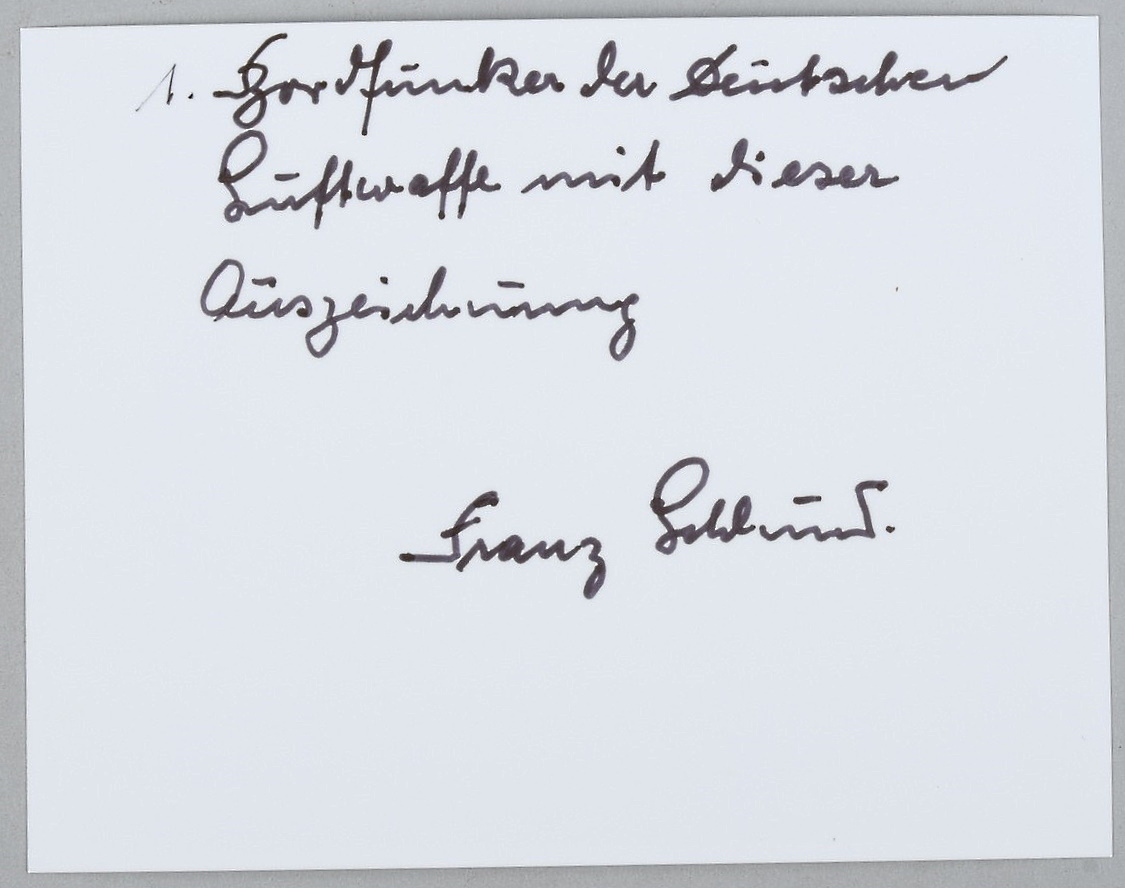 1. Bordfunker der Deutschen
Luftwaffe mit dieser
Auszeichnung
Franz Schlund.